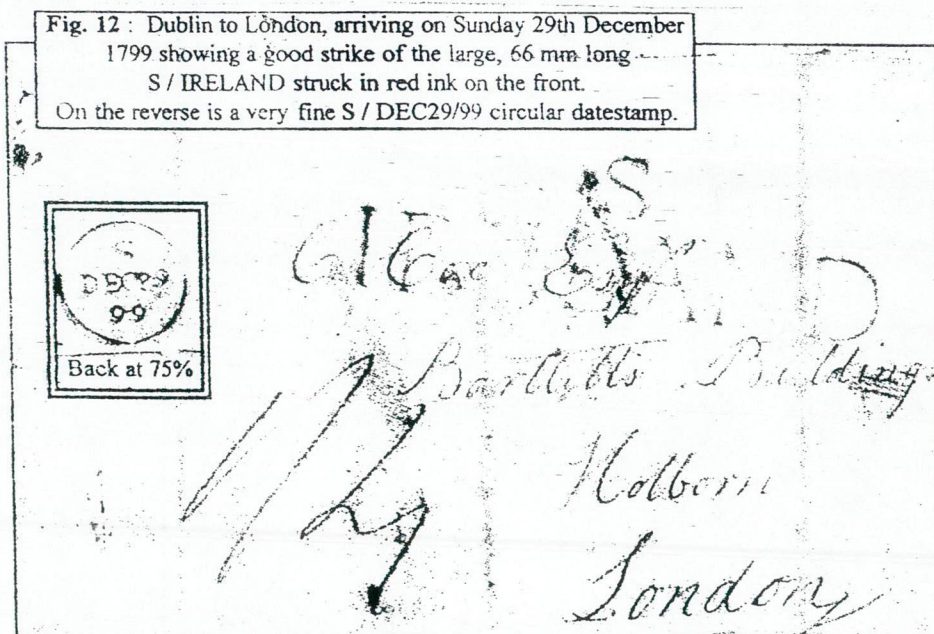 Fig. 12 : Dublin to London, arriving on Sunday 29th December
1799 showing a good strike of the large, 66 mm long
S / IRELAND struck in red ink on the front.
On the reverse is a very fine S / DEC29/99 circular datestamp.
S
S
DEC29
99
Back at 75%
Bartletts Buildings
Holborn
London